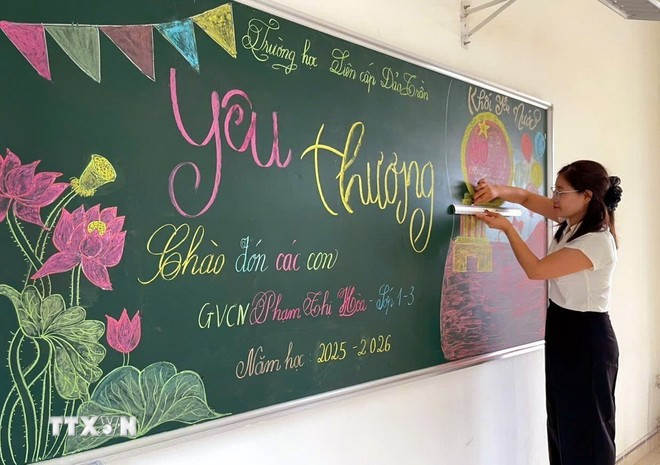 Trường học Liên cấp Đào Trần
Yêu thương
Chào đón các con
GVCN Phạm Thị Hòa - Lớp 1-3
Năm học: 2025-2026
Khối Yêu Nước
TTXVN